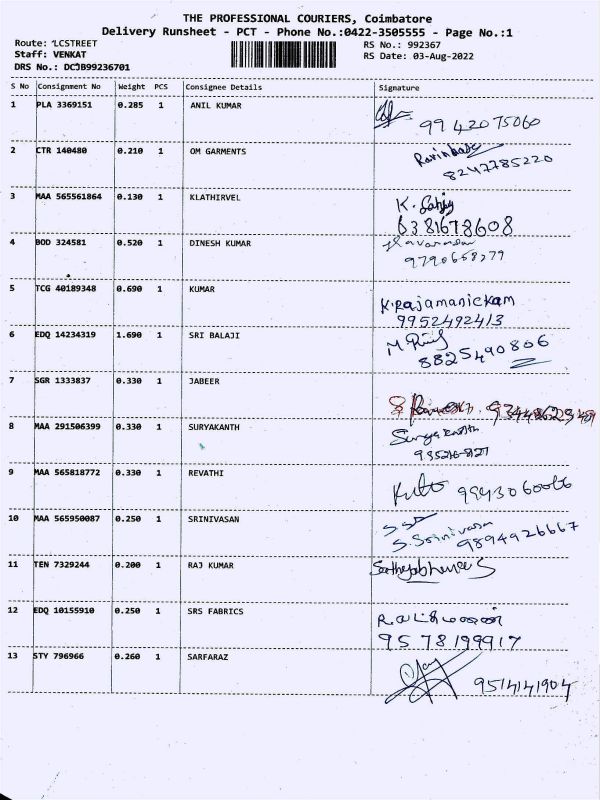 THE PROFESSIONAL COURIERS, Coimbatore
Delivery Runsheet - PCT - Phone No.:0422-3505555 - Page No.:1
Route: LCSTREET
RS No.: 992367
Staff: VENKAT
RS Date: 03-Aug-2022
DRS No.:
S No Consignment No Weight PCS Consignee Details Signature
1 PLA 3369151 0.285 1 ANIL KUMAR
9942075060
2 CTR 140480 0.210 1 OM GARMENTS
8247785220
3 MAA 565561864 0.130 1 KLATHIRVEL K.
6381678608
4 BOD 324581 0.520 1 DINESH KUMAR
5 TCG 40189348 0.690 1 KUMAR
K.rajamanickam
9952492413
6 EDQ 14234319 1.690 1 SRI BALAJI
8825490806
7 SGR 1333837 0.330 1 JABEER
8 MAA 291506399 0.330 1 SURYAKANTH
Suryakanth
9 MAA 565818772 0.330 1 REVATHI
10 MAA 565950087 0.250 1 SRINIVASAN
S. Srinivasan
9894926667
11 TEN 7329244 0.200 1 RAJ KUMAR
12 EDQ 10155910 0.250 1 SRS FABRICS
9578199917
13 STY 796966 0.260 1 SARFARAZ
9514141904